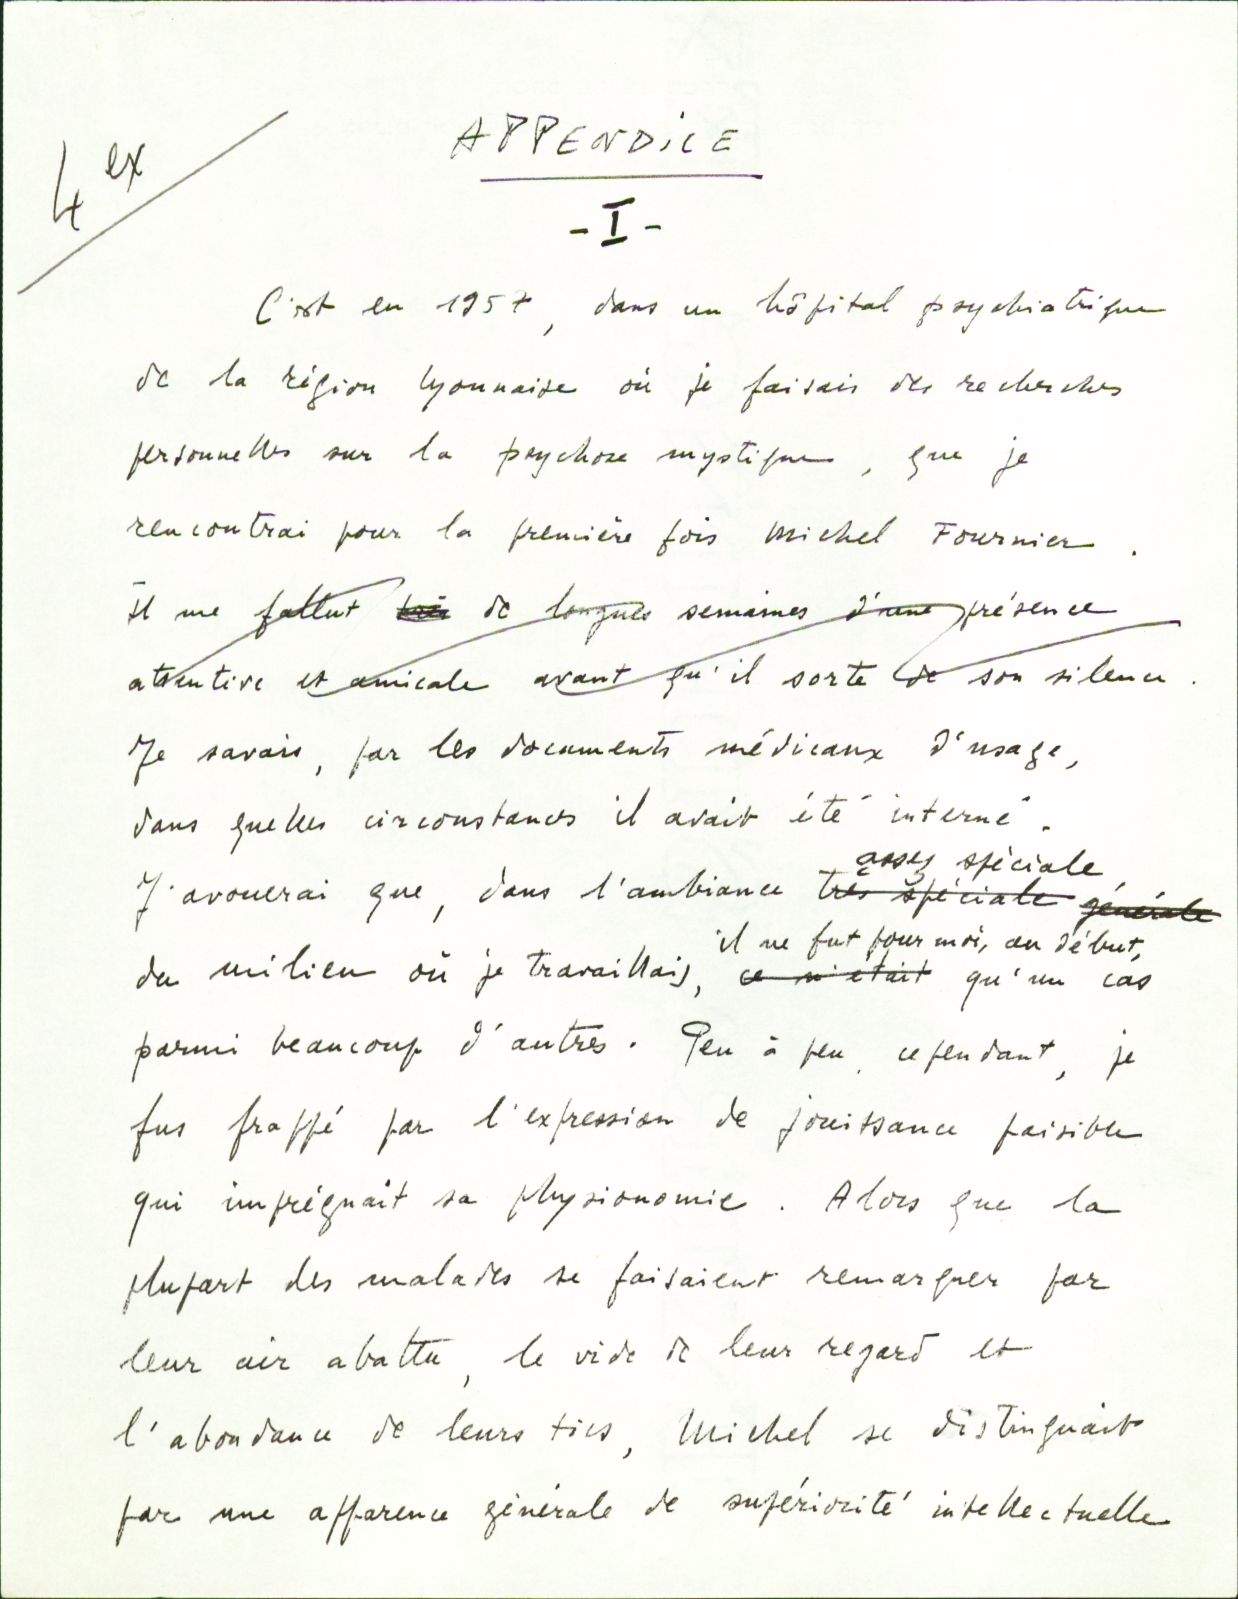 4 ex
APPENDICE
- I -
C'est en 1957, dans un hôpital psychiatrique
de la région lyonnaise où je faisais des recherches
personnelles sur la psychose mystique, que je
rencontrai pour la première fois Michel Fournier.
Il me fallut très de longues semaines d'une présence
attentive et amicale avant qu'il sorte de son silence.
Je savais, par les documents médicaux d'usage,
dans quelles circonstances il avait été interné.
assez spéciale
J'avouerai que, dans l'ambiance très spéciale générale
il ne fut pour moi, au début,
du milieu où je travaillais, ce n'était qu'un cas
parmi beaucoup d'autres. Peu à peu, cependant, je
fus frappé par l'expression de jouissance paisible
qui imprégnait sa physionomie. Alors que la
plupart des malades se faisaient remarquer par
leur air abattu, le vide de leur regard et
l'abondance de leurs tics, Michel se distinguait
par une apparence générale de supériorité intellectuelle